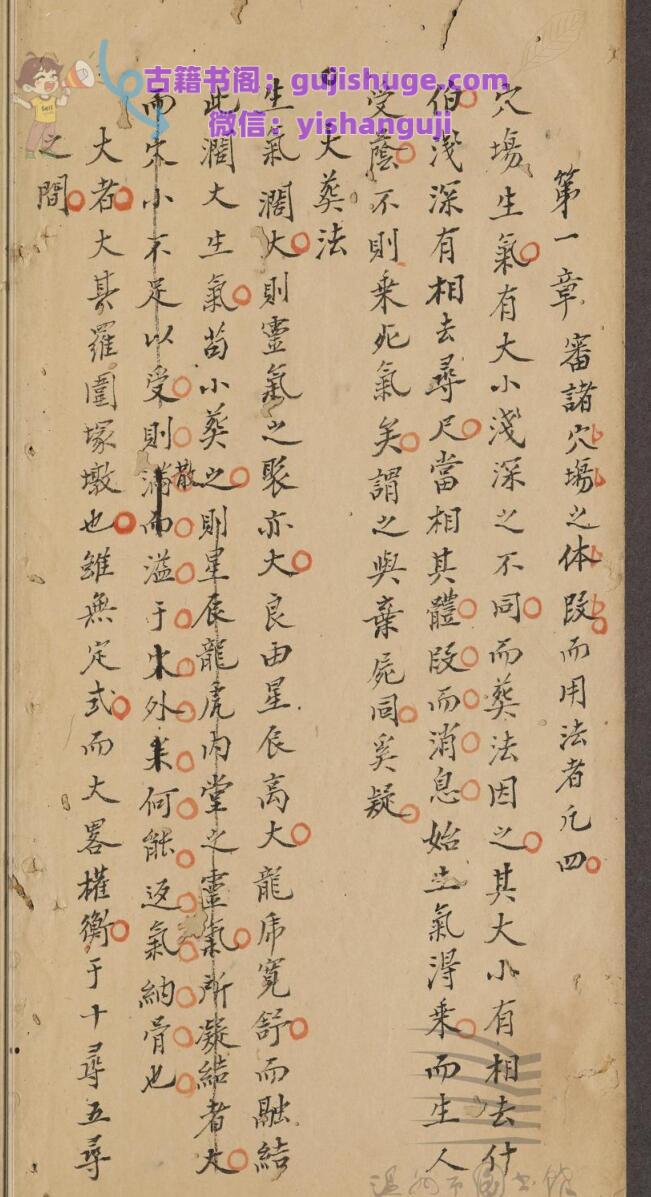 古籍书阁：gujishuge.com
微信：yishanguji
第一章 審諸穴塲之体段而用法者凡四
穴塲生氣有大小淺深之不同而葬法因之其大小有相去什
伯淺深有相去尋尺當相其體段而消息始生氣得乘而生人
受蔭不則乘死氣矣謂之與棄屍同奚疑
大葬法
生氣濶大則靈氣之聚亦大良由星辰高大龍虎寛舒而融結
此濶大生氣苟小葬之則星辰龍虎内堂之靈氣所凝結者大
而穴小不足以受則滿散而溢于穴外 何能返氣納骨也
大者大其羅圍塚墩也雖無定式而大畧權衡于十尋五尋
之間
温州市圖書館